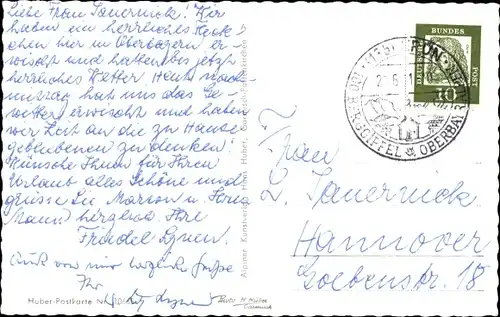 Liebe Frau Sauernick! Wir
haben ein herrliches Fleck-
chen hier in Oberbayern er-
wischt und hatten bis jetzt
herrliches Wetter. Heute nach-
mittag hat uns das Ge-
witter erwischt und haben
wir Zeit an die zu Hause
gebliebenen zu denken!
Wünsche Ihnen für Ihren
Urlaub alles Schöne und
grüsse Sie, Marion u. Ihren
Mann herzlich Ihre
Friedel
Auch von mir herzliche Grüße
Ihr
Huber-Postkarte Nr.
Alpiner Kunstverlag Hans Huber, Garmisch-Partenkirchen
Photo H. Huber
Garmisch
DEUTSCHE BUNDESPOST
10
BERGGIPFEL OBERBAY
Frau
L. Sauernick
Hannover
Goebenstr. 18